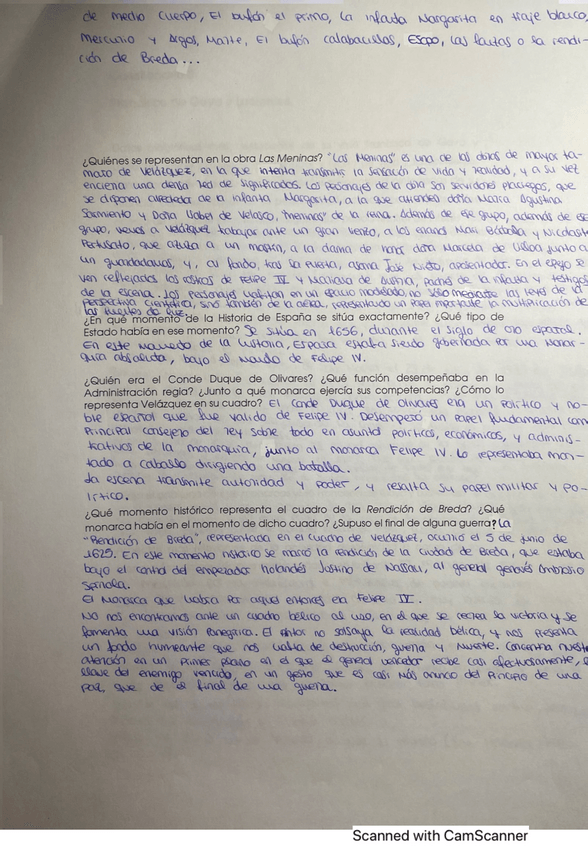 de medio cuerpo, El bufón el primo, La infanta Margarita en traje blanco,
Mercurio y Argos, Marte, El bufón calabacillas, Esopo, Las lautas o la rendi-
ción de Breda...
¿Quiénes se representan en la obra Las Meninas? "Las Meninas" es una de las obras de mayor ta-
maño de Velázquez, en la que intenta transmitir la sensación de vida y realidad, y a su vez
encierra una densa red de significados. Los personajes de la obra son servidores palaciegos, que
se disponen alrededor de la infanta Margarita, a la que atienden doña María Agustina
Sarmiento y Doña Isabel de Velasco, "meninas" de la reina. Además de ese grupo, además de ese
grupo, vemos a Velázquez trabajar ante un gran lienzo, a los enanos Mari Bárbola y Nicolasito
Pertusato, que azuza a un mastín, a la dama de honor doña Marcela de Ulloa junto a
un guardadamas, y, al fondo, tras la puerta, asoma José Nieto, aposentador. En el espejo se
ven reflejados los rostros de Felipe IV y Mariana de Austria, padres de la infanta y testigos
de la escena. Los personajes habitan en un espacio modelado no sólo mediante las leyes de la
perspectiva científica, sino también de la aérea, representando un papel importante la multiplicación de
las fuentes de luz.
¿En qué momento de la Historia de España se sitúa exactamente? ¿Qué tipo de
Estado había en ese momento? Se sitúa en 1656, durante el siglo de oro español.
En este momento de la historia, España estaba siendo gobernada por una monar-
quía absoluta, bajo el mando de Felipe IV.
¿Quién era el Conde Duque de Olivares? ¿Qué función desempeñaba en la
Administración regia? ¿Junto a qué monarca ejercía sus competencias? ¿Cómo lo
representa Velázquez en su cuadro? El Conde Duque de Olivares era un político y no-
ble español que fue valido de Felipe IV. Desempeñó un papel fundamental como
principal consejero del rey sobre todo en asuntos políticos, económicos, y adminis-
trativos de la monarquía, junto al monarca Felipe IV. Lo representaba mon-
tado a caballo dirigiendo una batalla.
La escena transmite autoridad y poder, y resalta su papel militar y po-
lítico.
¿Qué momento histórico representa el cuadro de la Rendición de Breda? ¿Qué
monarca había en el momento de dicho cuadro? ¿Supuso el final de alguna guerra? La
"Rendición de Breda", representada en el cuadro de Velázquez, ocurrió el 5 de junio de
1625. En este momento histórico se marcó la rendición de la ciudad de Breda, que estaba
bajo el control del emperador holandés Justino de Nassau, al general genovés Ambrosio
Spínola.
El monarca que había por aquel entonces era Felipe IV.
No nos encontramos ante un cuadro bélico al uso, en el que se recrea la victoria y se
fomenta una visión panegírica. El pintor no soslaya la realidad bélica, y nos presenta
un fondo humeante que nos habla de destrucción, guerra y muerte. Concentra nuestra
atención en un primer plano en el que el general vencedor recibe casi afectuosamente, la
llave del enemigo vencido, en un gesto que es casi más anuncio del principio de una
paz, que de el final de una guerra.
Scanned with CamScanner